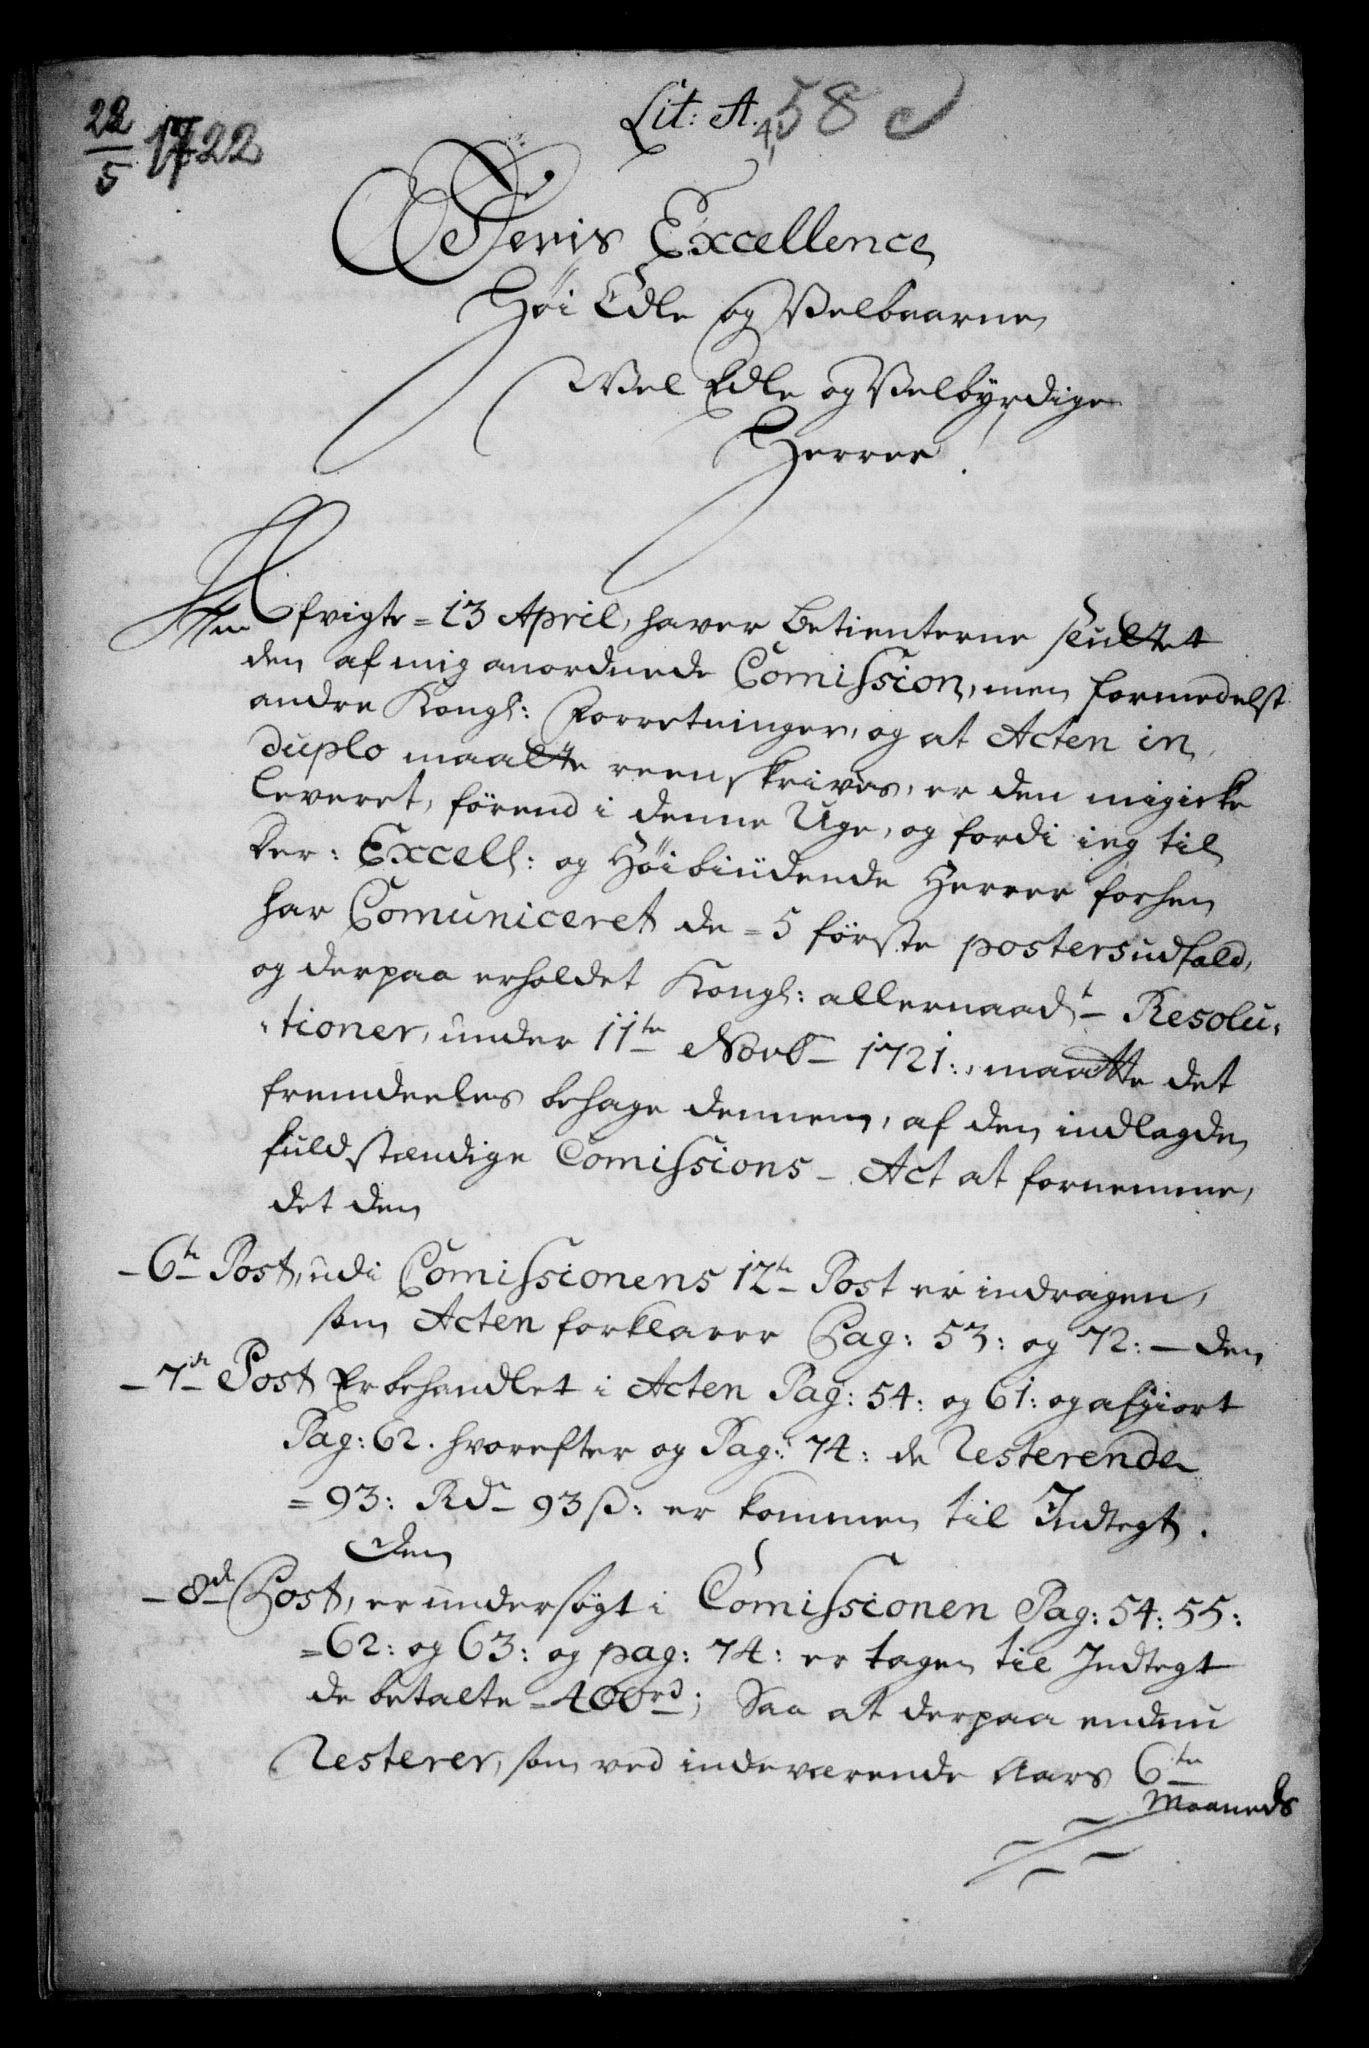 22/5 1722
Lit: A. 58 c
4,
Deris Excellence
Høi Edle og Velbaarne
Vel Edle og Velbyrdige
Herrer
Den Afvigte = 13 April, haver Betienterne sluttet
den af mig anordnede Comission, men formedelst
andre Kongl: Forretninger, og at Acten in
duplo maatte reenskrives, er den mig icke
leveret, førend i denne Uge, og fordi ieg til
Der: Excell: og Høibiudende Herrer forhen
har Comuniceret de = 5 første posters udfald,
og derpaa erholdet Kongl: allernaadt- Resolu,
,tioner, under 11te Novb- 1721:, maatte det
fremdeeles behage dennem, af den indlagde
fuldstændige Comissions- Act at fornemme,
det den
- 6te Post, udi Comissionens 12te Post er indragen,
som Acten forklarer Pag: 53: og 72: - den
- 7de Post Er behandlet i Acten Pag: 54: og 61: og afgiort
Pag: 62. hvorefter og Pag: 74: de Resterende
= 93: Rdr 93 ß: er kommen til Indtegt.
Den
- 8de Post, er undersøgt i Comissionen Pag: 54: 55:
= 62: og 63: og pag: 74: er tagen til Indtegt
de betalte = 400rd; Saa at derpaa endnu
Resterer, som ved indeværende Aars 6te
Maaneds